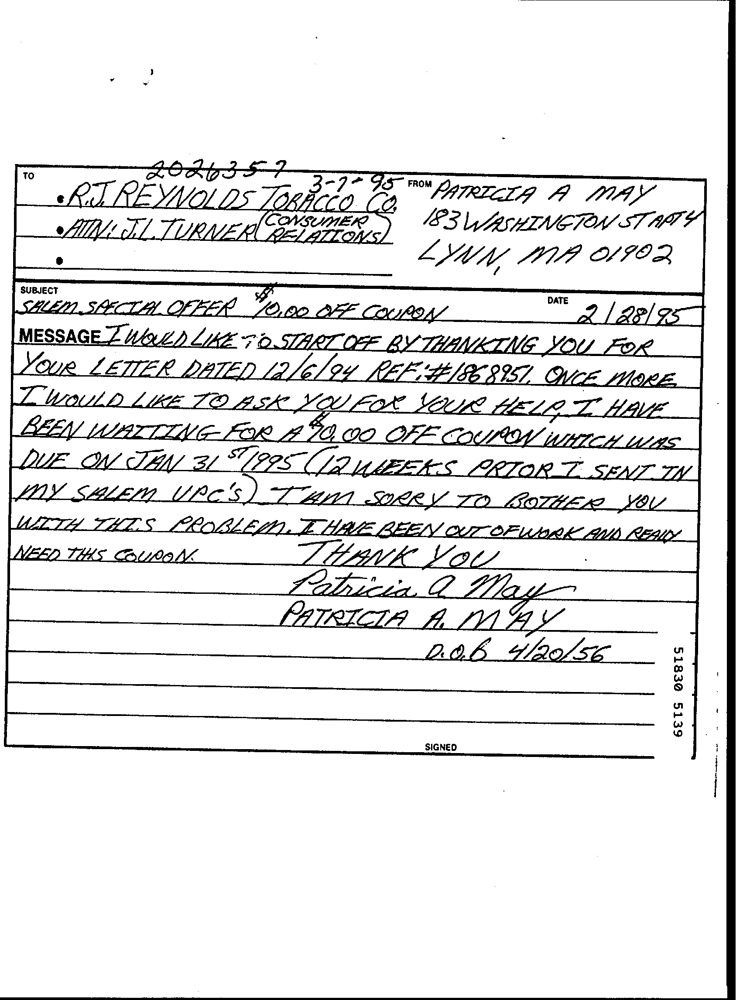 2026357
3-7-95
TO
• R.J. REYNOLDS TOBACCO CO.
• ATTN: J.L. TURNER (CONSUMER RELATIONS)
•
FROM PATRICIA A MAY
183 WASHINGTON ST APT 4
LYNN, MA 01902
SUBJECT
SALEM SPECIAL OFFER $10.00 OFF COUPON
DATE 2/28/95
MESSAGE I WOULD LIKE TO START OFF BY THANKING YOU FOR
YOUR LETTER DATED 12/6/94 REF:#1868951. ONCE MORE
I WOULD LIKE TO ASK YOU FOR YOUR HELP, I HAVE
BEEN WAITING FOR A $10.00 OFF COUPON WHICH WAS
DUE ON JAN 31ST 1995 (12 WEEKS PRIOR I SENT IN
MY SALEM UPC'S) I AM SORRY TO BOTHER YOU
WITH THIS PROBLEM. I HAVE BEEN OUT OF WORK AND REALLY
NEED THIS COUPON. THANK YOU
Patricia A May
PATRICIA A. MAY
D.O.B 4/20/56
SIGNED
51830 5139